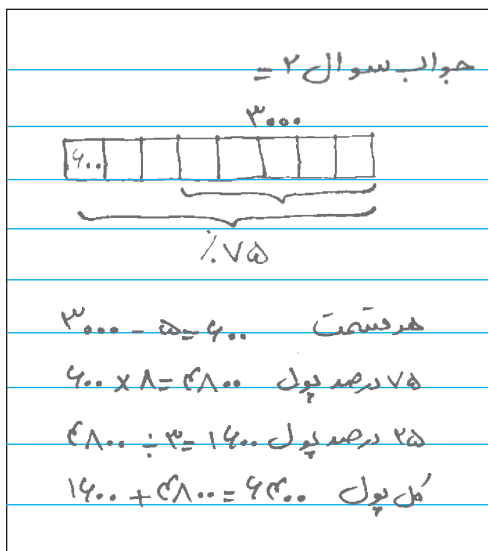 جواب سوال ۲ =
۳۰۰۰
۶۰۰
٪۷۵
هر قسمت ۳۰۰۰ ÷ ۵ = ۶۰۰
۷۵ درصد پول ۶۰۰ × ۸ = ۴۸۰۰
۲۵ درصد پول ۴۸۰۰ ÷ ۳ = ۱۶۰۰
کل پول ۱۶۰۰ + ۴۸۰۰ = ۶۴۰۰